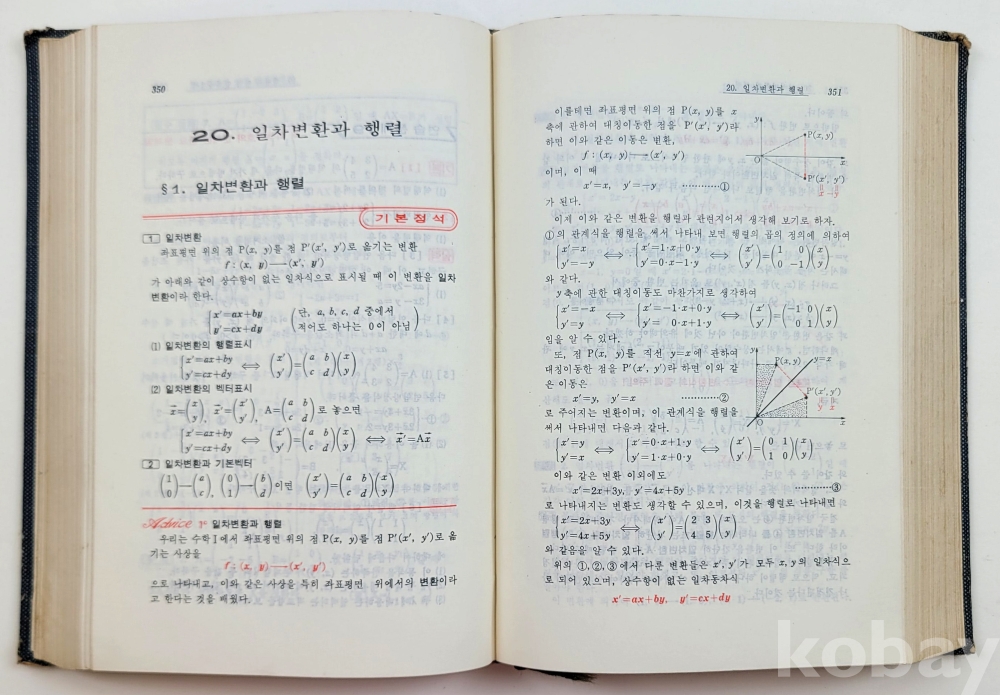 350
20. 일차변환과 행렬
§1. 일차변환과 행렬
기본정석
1 일차변환
좌표평면 위의 점 P(x, y)를 점 P'(x', y')로 옮기는 변환
f : (x, y)—→(x', y')
가 아래와 같이 상수항이 없는 일차식으로 표시될 때 이 변환을 일차
변환이라 한다.
{x'=ax+by
y'=cx+dy (단, a, b, c, d 중에서
적어도 하나는 0이 아님)
(1) 일차변환의 행렬표시
{x'=ax+by
y'=cx+dy ⟺ (x'
y')=(a b
c d)(x
y)
(2) 일차변환의 벡터표시
x⃗=(x
y), x⃗'=(x'
y'), A=(a b
c d)로 놓으면
{x'=ax+by
y'=cx+dy ⟺ (x'
y')=(a b
c d)(x
y) ⟺ x⃗'=Ax⃗
2 일차변환과 기본벡터
(1
0)—→(a
c), (0
1)—→(b
d)이면 (x'
y')=(a b
c d)(x
y)
Advice 1° 일차변환과 행렬
우리는 수학 I에서 좌표평면 위의 점 P(x, y)를 점 P'(x', y')로 옮
기는 사상을
f : (x, y)—→(x', y')
으로 나타내고, 이와 같은 사상을 특히 좌표평면 위에서의 변환이라
고 한다는 것을 배웠다.
20. 일차변환과 행렬 351
이를테면 좌표평면 위의 점 P(x, y)를 x
축에 관하여 대칭이동한 점을 P'(x', y')라
하면 이와 같은 이동은 변환,
f : (x, y)—→(x', y')
이며, 이 때
x'=x, y'=-y, …………①
가 된다.
y
P(x, y)
O
x
P'(x', y')
x -y
이제 이와 같은 변환을 행렬과 관련지어서 생각해 보기로 하자.
①의 관계식을 행렬을 써서 나타내 보면 행렬의 곱의 정의에 의하여
{x'=x
y'=-y ⟺ {x'=1·x+0·y
y'=0·x-1·y ⟺ (x'
y')=(1 0
0 -1)(x
y)
와 같다.
y축에 관한 대칭이동도 마찬가지로 생각하여
{x'=-x
y'=y ⟺ {x'=-1·x+0·y
y'= 0·x+1·y ⟺ (x'
y')=(-1 0
0 1)(x
y)
임을 알 수 있다.
또, 점 P(x, y)를 직선 y=x에 관하여
대칭이동한 점을 P'(x', y')라 하면 이와 같
은 이동은
x'=y, y'=x …………②
로 주어지는 변환이며, 이 관계식을 행렬을
써서 나타내면 다음과 같다.
y
P(x, y)
y=x
P'(x', y')
y x
O
x
{x'=y
y'=x ⟺ {x'=0·x+1·y
y'=1·x+0·y ⟺ (x'
y')=(0 1
1 0)(x
y)
이와 같은 변환 이외에도
x'=2x+3y, y'=4x+5y …………③
로 나타내지는 변환도 생각할 수 있으며, 이것을 행렬로 나타내면
{x'=2x+3y
y'=4x+5y ⟺ (x'
y')=(2 3
4 5)(x
y)
와 같음을 알 수 있다.
위의 ①,②,③에서 다룬 변환들은 x', y'가 모두 x, y의 일차식으
로 되어 있으며, 상수항이 없는 일차동차식
x'=ax+by, y'=cx+dy
kobay